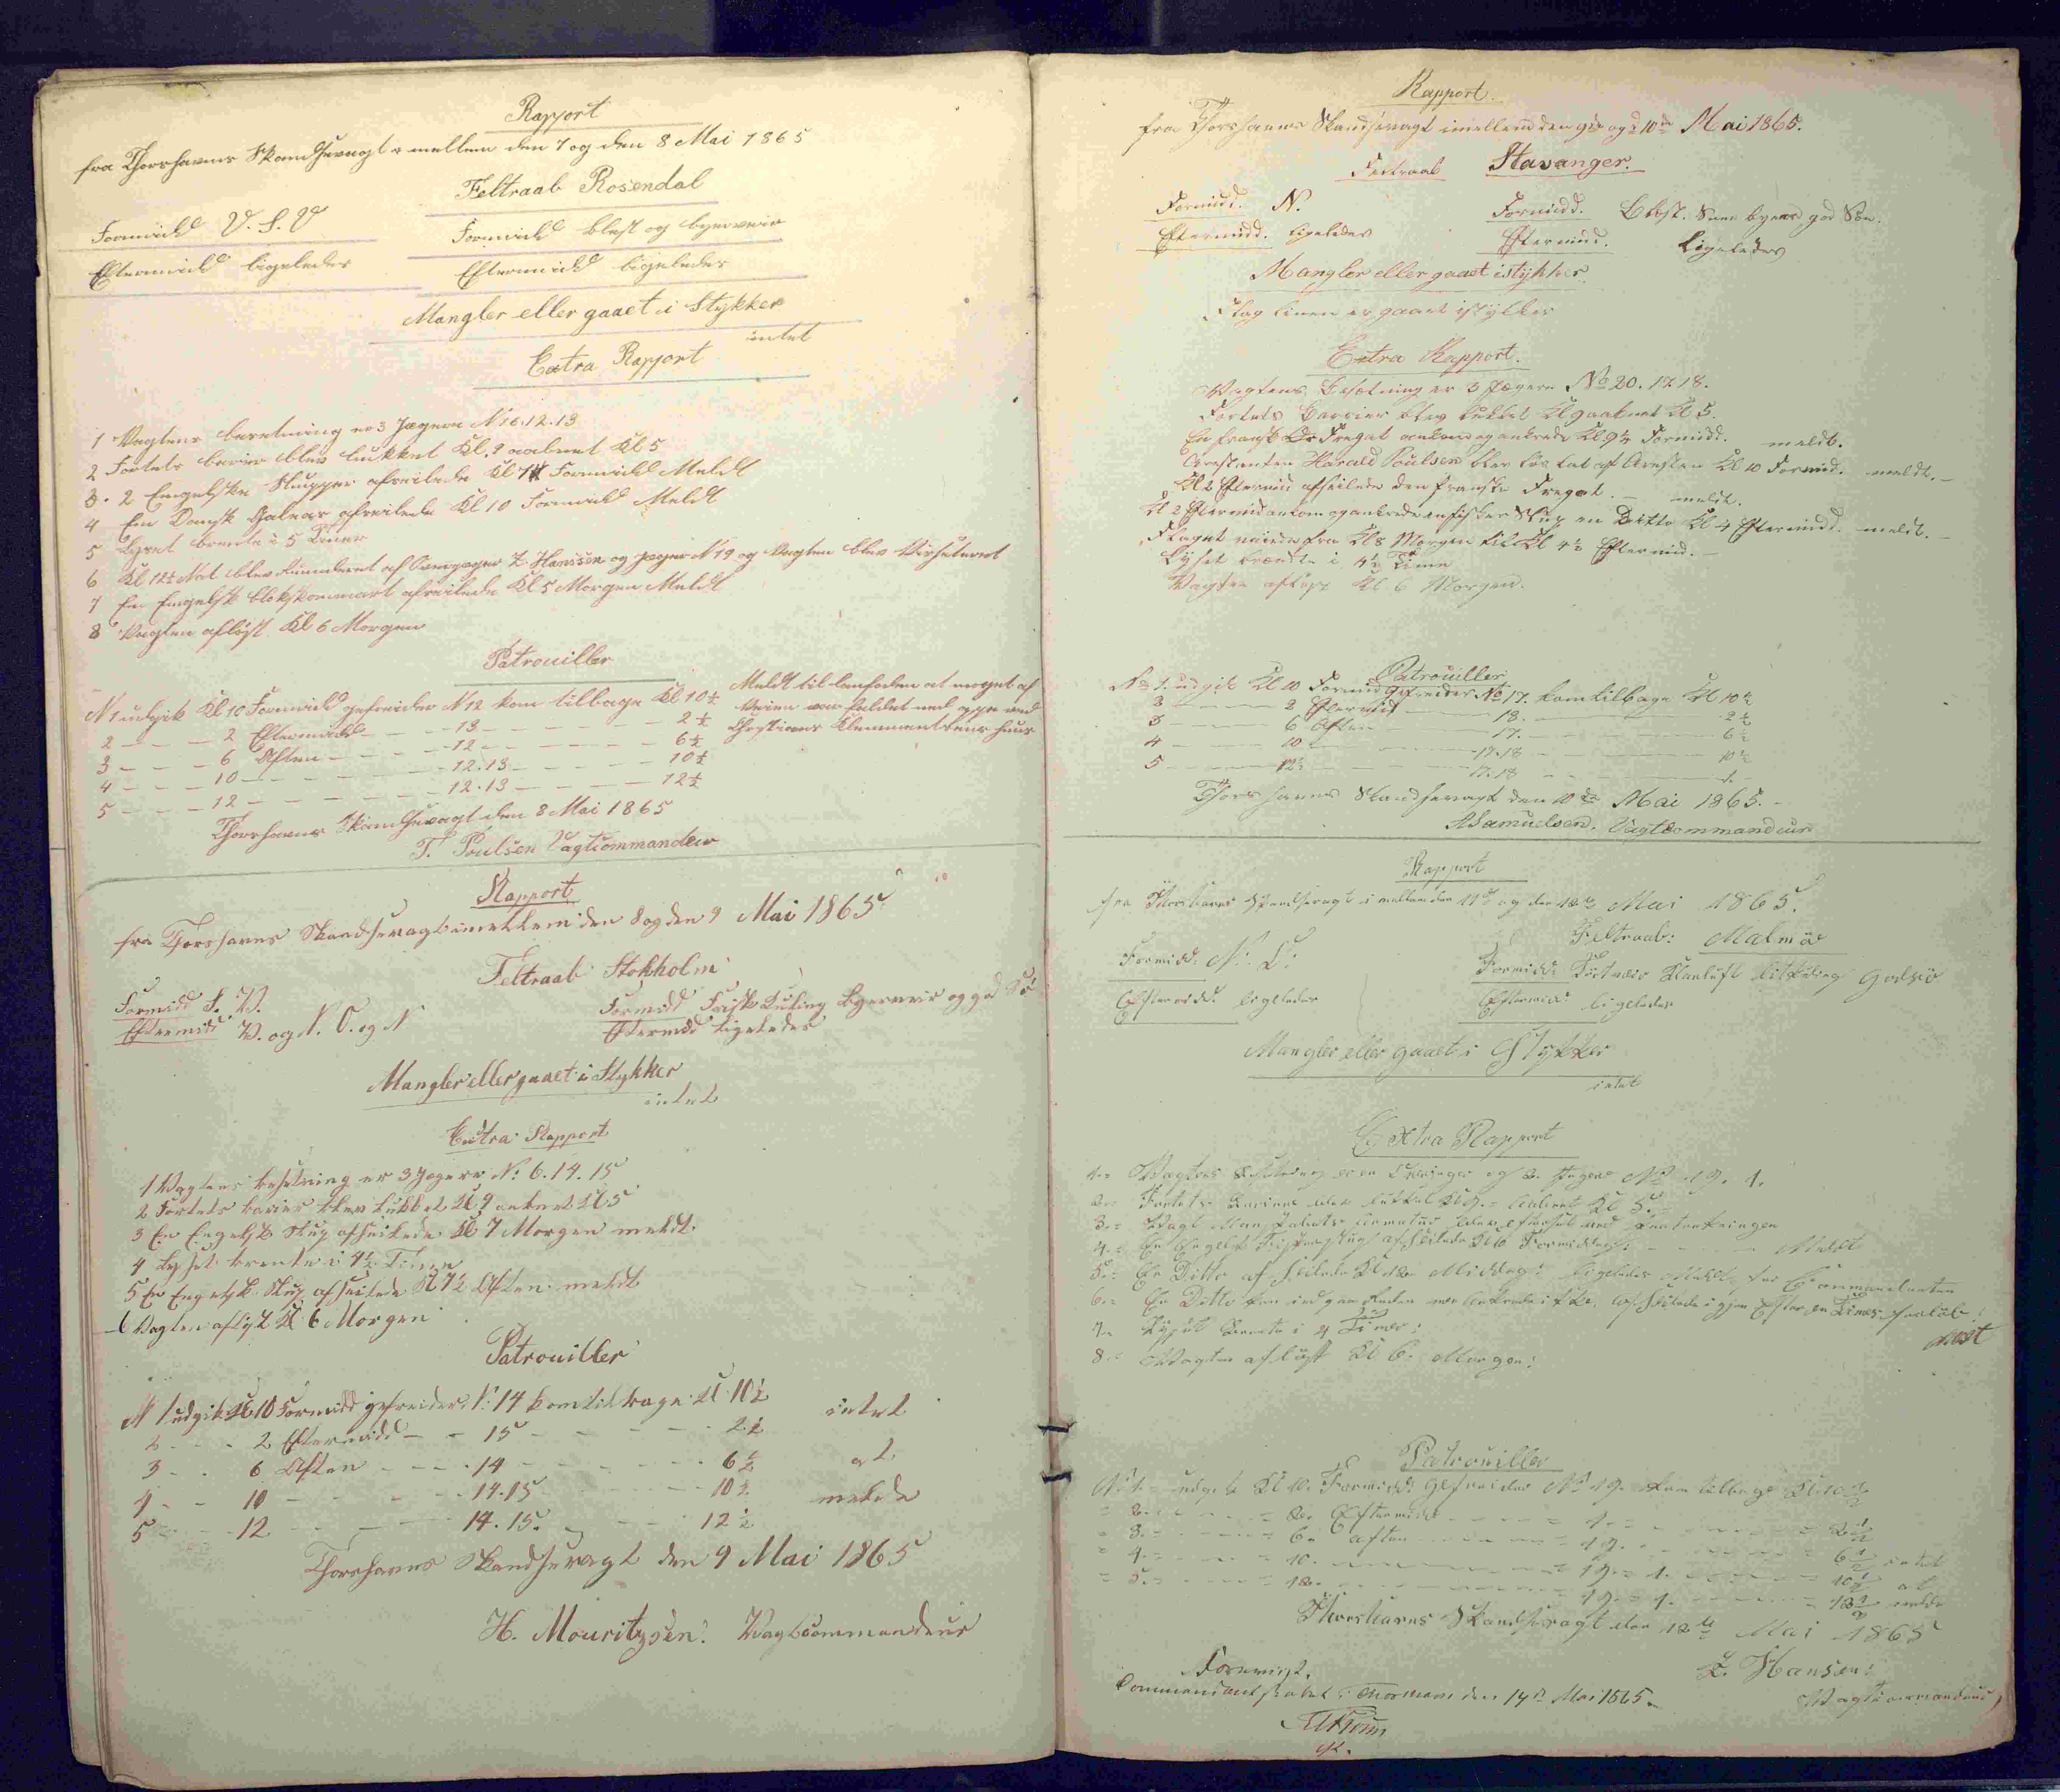 Rapport
fra Thorshavns Skandsevagt imellem den 7 og den 8 Mai 1865
Feltraab Rosendal
Formidd V. S. V
Formidd blest og byerveir
Eftermidd ligeledes
Eftermidd ligeledes
Mangler eller gaaet i Stykker
intet
Extra Rapport
1 Vagtens besetning er 3 Jægere N 16.12.13
2 Fortets barier blev lukket Kl. 9 aabnet Kl 5
3. 2 Engelske Slupper afseilede Kl 7 Formidd Meldt
4 En Dansk Galeas afseilede Kl 10 Formidd Meldt
5 Lyset brente i 5 Timer
6 Kl 12½ Nat blev Runderet af Overjæger Z Hanssen og Jæger N 19 og Vagten blev Visiteret
7 En Engelsk afseilede Kl 5 Morgen Meldt
8 Vagten afløst Kl 6 Morgen
Patrouiller
N 1 udgik Kl 10 Formidd gefreider N 12 kom tilbage Kl 10½
2 — — — 2 Eftermidd — — — 13 — — — 2½
3 — — — 6 Aften — — — 12 — — — 6½
4 — — — 10 — — — 12.13 — — — 10½
5 — — — 12 — — — 12.13 — — — 12½
Meldt til at noget af
Veien var faldet ned oppe ved
Christians Klemmentsens huus
Thorshavns Skandsevagt den 8 Mai 1865
T. Poulsen Vagtcommandeur
Rapport
fra Thorshavns Skandsevagt imellem den 8 og den 9 Mai 1865
Feltraab Stokholm
Formidd S. V.
Formidd Frisk Kuling Byerveir og god Sø
Eftermidd V. og N. O. og N
Eftermidd ligeledes
Mangler eller gaaet i Stykker
intet
Extra Rapport
1 Vagtens besetning er 3 Jegere N: 6. 14. 15
2 Fortets barier blev lukket Kl. 9 aabnet Kl 5
3 En Engelsk Slup afseilede Kl 7 Morgen meldt
4 Lyset brente i 4½ Timer
5 En Engelsk Slup afseilede Kl 7½ Aften meldt
6 Vagten afløst Kl 6 Morgen
Patrouiller
N 1 udgik Kl 10 Formidd gefreider N: 14 kom tilbage Kl 10½ intet
2 - - - 2 Eftermidd - - 15 - - - 2½
3 - - 6 Aften - - - 14 - - - 6½ at
4 - - 10 - - - 14.15 - - - 10½ melde
5 - - 12 - - - 14.15. - - - 12½
Thorshavns Skandsevagt den 9 Mai 1865
H. Mouritzsen. Vagtcommandeur
Rapport.
fra Thorshavns Skandsevagt imellem den 9de og d 10de Mai 1865.
Feltraab Stavanger.
Formidd. N.
Formidd. Blest. Snee byeer god Søe.
Eftermidd. ligeledes
Eftermidd. ligeledes
Mangler eller gaaet istykker
Flag linen er gaaet istykker
Extra Rapport.
Vagtens Besetning er 3 Jægere No 20. 17. 18.
Fortets Barrier blev lukket Kl 9 aabnet Kl 5.
En fransk Fregat ankom og ankrede Kl 9½ Formidd. meldt.
Arestanten Harald Poulsen blev løs lat af Aresten Kl 10 Formid. meldt.
Kl 2 Eftermid afseilede den franske Fregat. — meldt.
Kl 2 Eftermid ankom og ankrede en fisker Slup en Ditto Kl 4 Eftermidd. meldt. —
Flaget vaiede fra Kl 8 Morgen til Kl 4½ Eftermid. —
Lyset brændte i 4½ Time
Vagten afløst Kl 6 Morgen.
Patrouiller
No 1. udgik Kl 10 Formid Gefreider No 17. kom tilbage Kl 10½
2 — — 2 Eftermid — 18. — 2½
3 — — 6 Aften — 17. — 6½
4 — — 10 — 17.18 — 10½
5 — — 12½ — 17.18 — 1. —
Thorshavns Skandsevagt den 10de Mai 1865. —
ASamuelsen. Vagtcommandeur
Rapport
fra Thorshavns Skandsevagt imellem den 11te og den 12te Mai 1865.
Feltraab: Malmø
Formidd: N: O:
Formidd: Tørt veir Godsø
Eftermidd. ligeledes
Eftermidd: ligeledes
Mangler eller gaaet i Stykker
intet
Extra Rapport
1.= Vagtens Besetning er en og 2. Jegere No 19. 1.
2.= Fortets Bariere blev lukket Kl 9.= aabnet Kl 5.=
3.= Vagt blev efterset ved
4.= En Engelsk Fiskerslup afseilede Kl 10 Formiddag: - - - - Meldt
5.= En Ditto afseilede Kl 12 Middag: ligeledes Meldt for Commandanten
6.= En Ditto kom ind paa Reden men ankrede ikke, afseilede igjen Efter en Times forløb:
Meldt
7.= Lyset Brente i 4 Timer:
8.= Vagten afløst Kl 6. Morgen:
Patrouiller
No 1.= udgik Kl 10. Formidd: Gefreider No 19. kom tilbage Kl: 10½
= 2.= - - - = 2. Eftermidd - - - = 1.= - - - = 2½
= 3.= - - - = 6.= aften - - - = 19. - - - = 6½ intet
= 4.= - - - = 10. - - - = 19.= 1. - - - = 10½ at
= 5.= - - - = 12. - - - = 19.= 1. - - - = 12½ melde
Thorshavns Skandsevagt den 12te Mai 1865
Z. Hansen:
Vagtcommandeur
Foreviist.
Commandantskabet i Thorshavn den 14de Mai 1865.